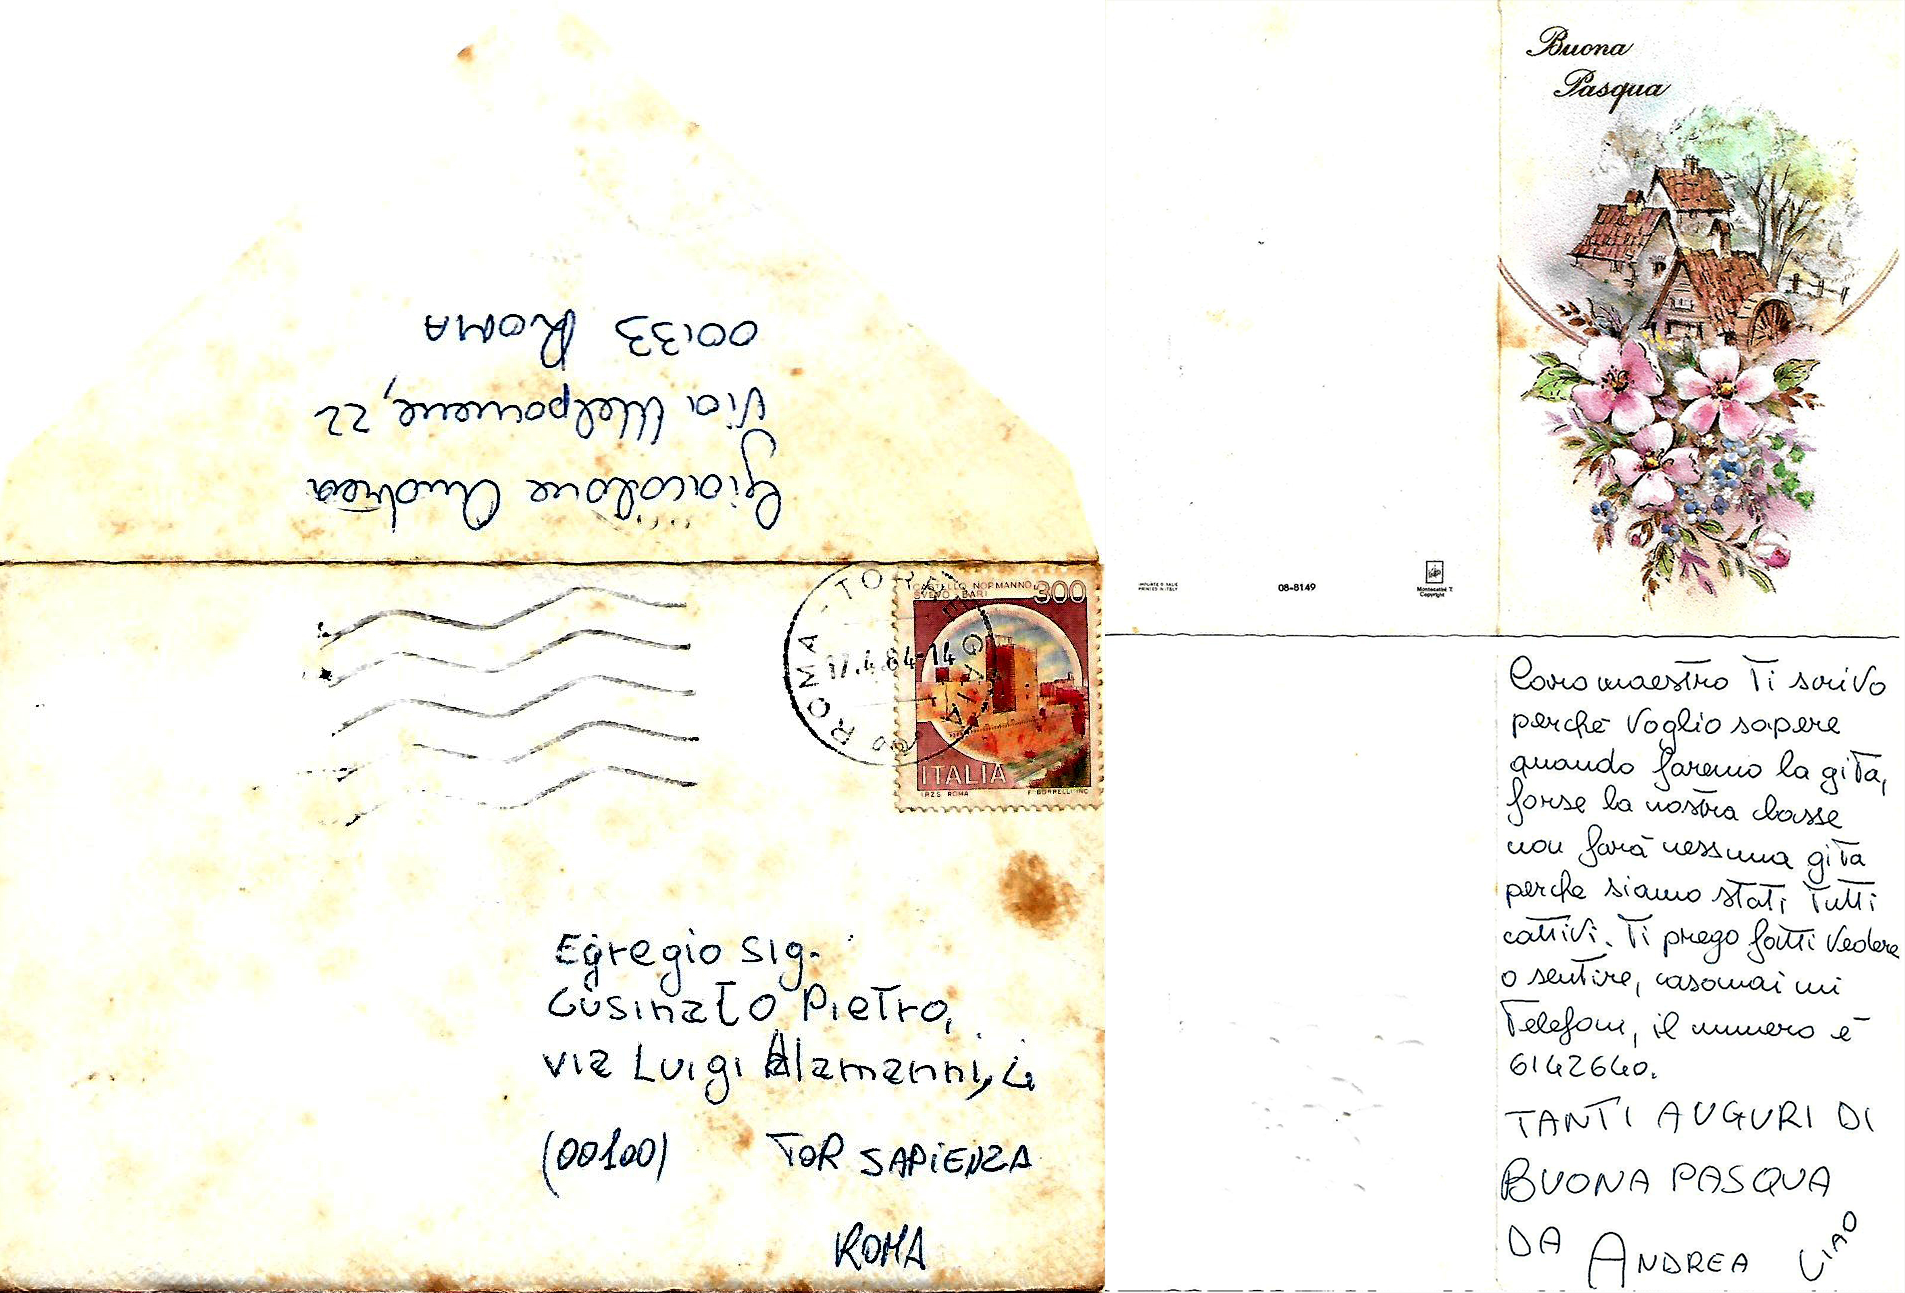 Giacalone Andrea
Via Melpomene, 22
00133 ROMA
CASTELLO NORMANNO
SVEVO - BARI
300
ROMA - TOR
GAIA
17.4.84-14
ITALIA
I.P.Z.S. ROMA
F. BORRELLI INC.
Egregio Sig.
Cusinato Pietro,
via Luigi Alamanni, 4
(00100) TOR SAPIENZA
ROMA
Buona
Pasqua
PRINTED IN ITALY
08-8149
Montecatini T.
Copyright
Caro maestro Ti scrivo
perchè voglio sapere
quando faremo la gita,
forse la nostra classe
non farà nessuna gita
perche siamo stati tutti
cattivi. Ti prego fatti vedere
o sentire, casomai mi
telefoni, il numero è
6142640.
TANTI AUGURI DI
BUONA PASQUA
DA ANDREA CIAO